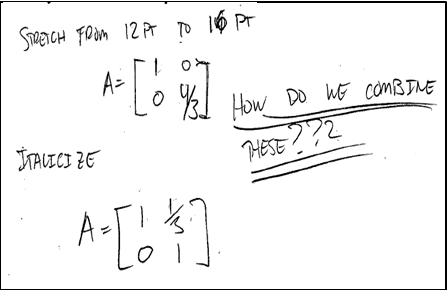 STRETCH FROM 12 PT TO 16 PT
A = [ 1 0
0 4/3 ]
HOW DO WE COMBINE
THESE???
ITALICIZE
A = [ 1 1/3
0 1 ]